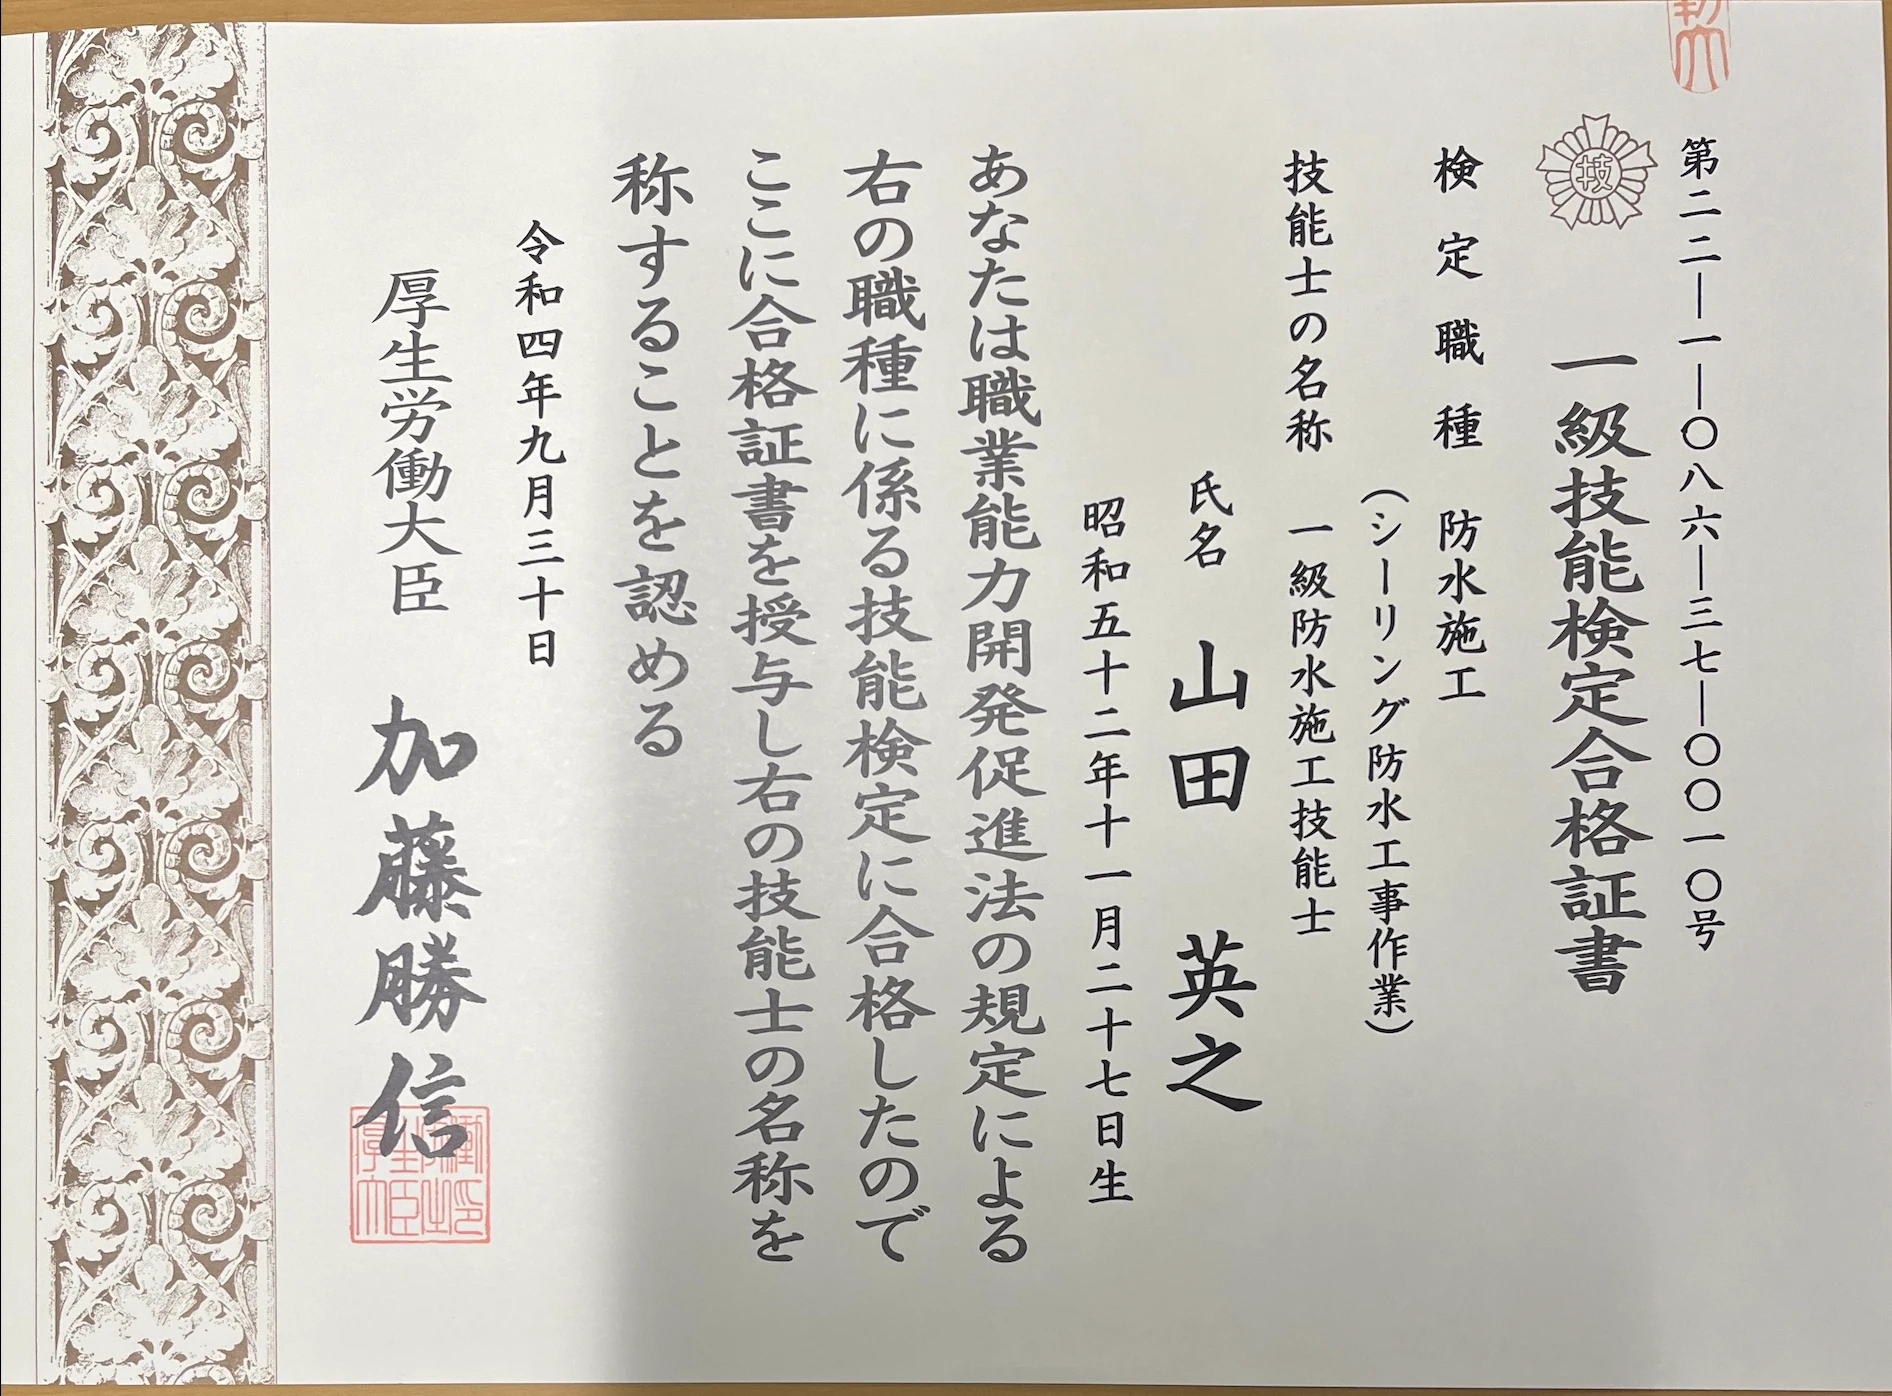 第二二―一―〇八六―三七―〇〇一〇号
技
一級技能検定合格証書
検定職種 防水施工
（シーリング防水工事作業）
技能士の名称 一級防水施工技能士
氏名 山田 英之
昭和五十二年十一月二十七日生
あなたは職業能力開発促進法の規定による
右の職種に係る技能検定に合格したので
ここに合格証書を授与し右の技能士の名称を
称することを認める
令和四年九月三十日
厚生労働大臣 加藤勝信